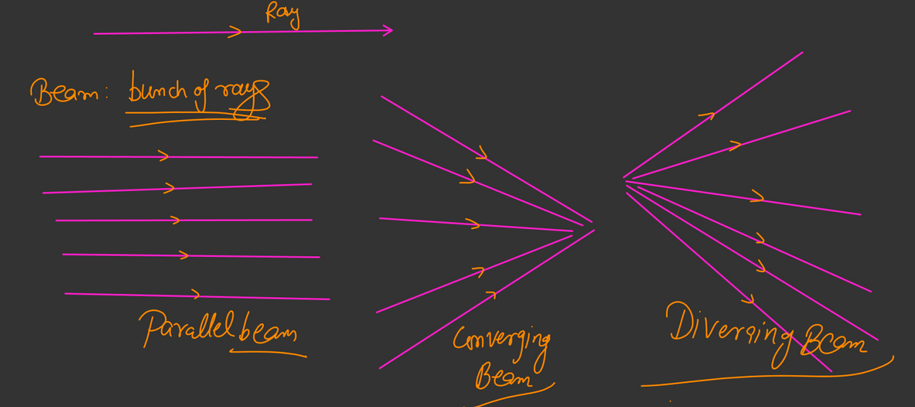 Ray
Beam: bunch of rays
Parallel beam
Converging
Beam
Diverging Beam